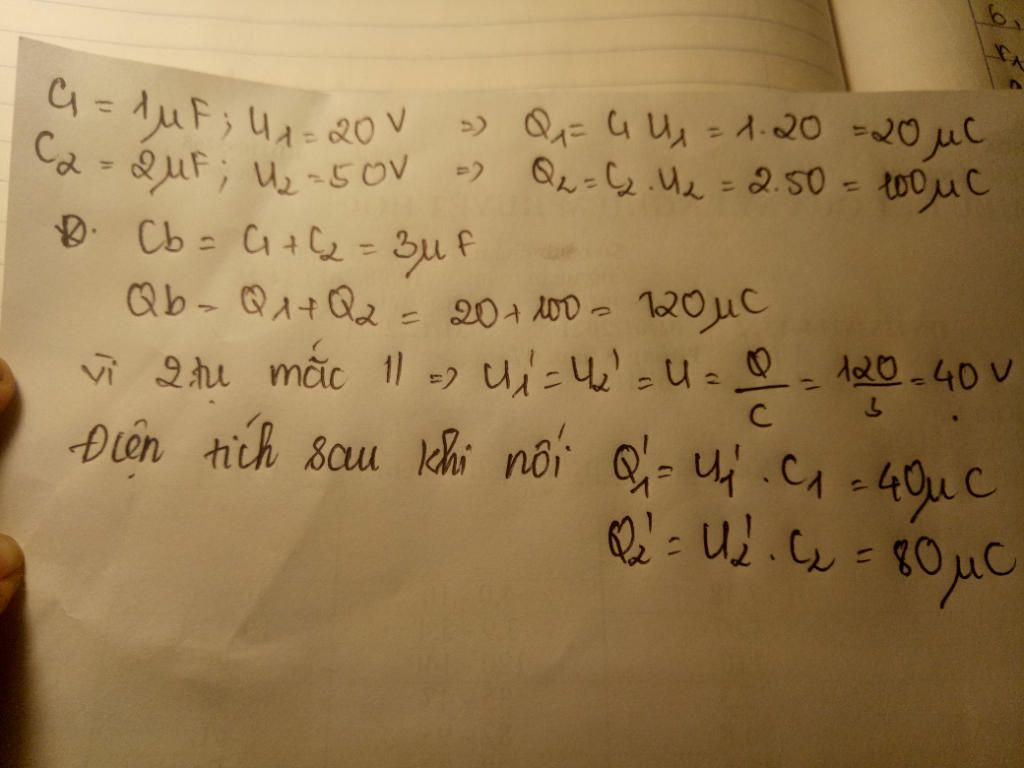 C1 = 1μF; U1 = 20V => Q1 = C1 U1 = 1.20 = 20μC
C2 = 2μF; U2 = 50V => Q2 = C2.U2 = 2.50 = 100μC
Cb = C1 + C2 = 3μF
Qb = Q1 + Q2 = 20 + 100 = 120μC
vì 2 tụ mắc // => U1' = U2' = U = Q/C = 120/3 = 40V
Điện tích sau khi nối Q1' = U1'.C1 = 40μC
Q2' = U2'.C2 = 80μC